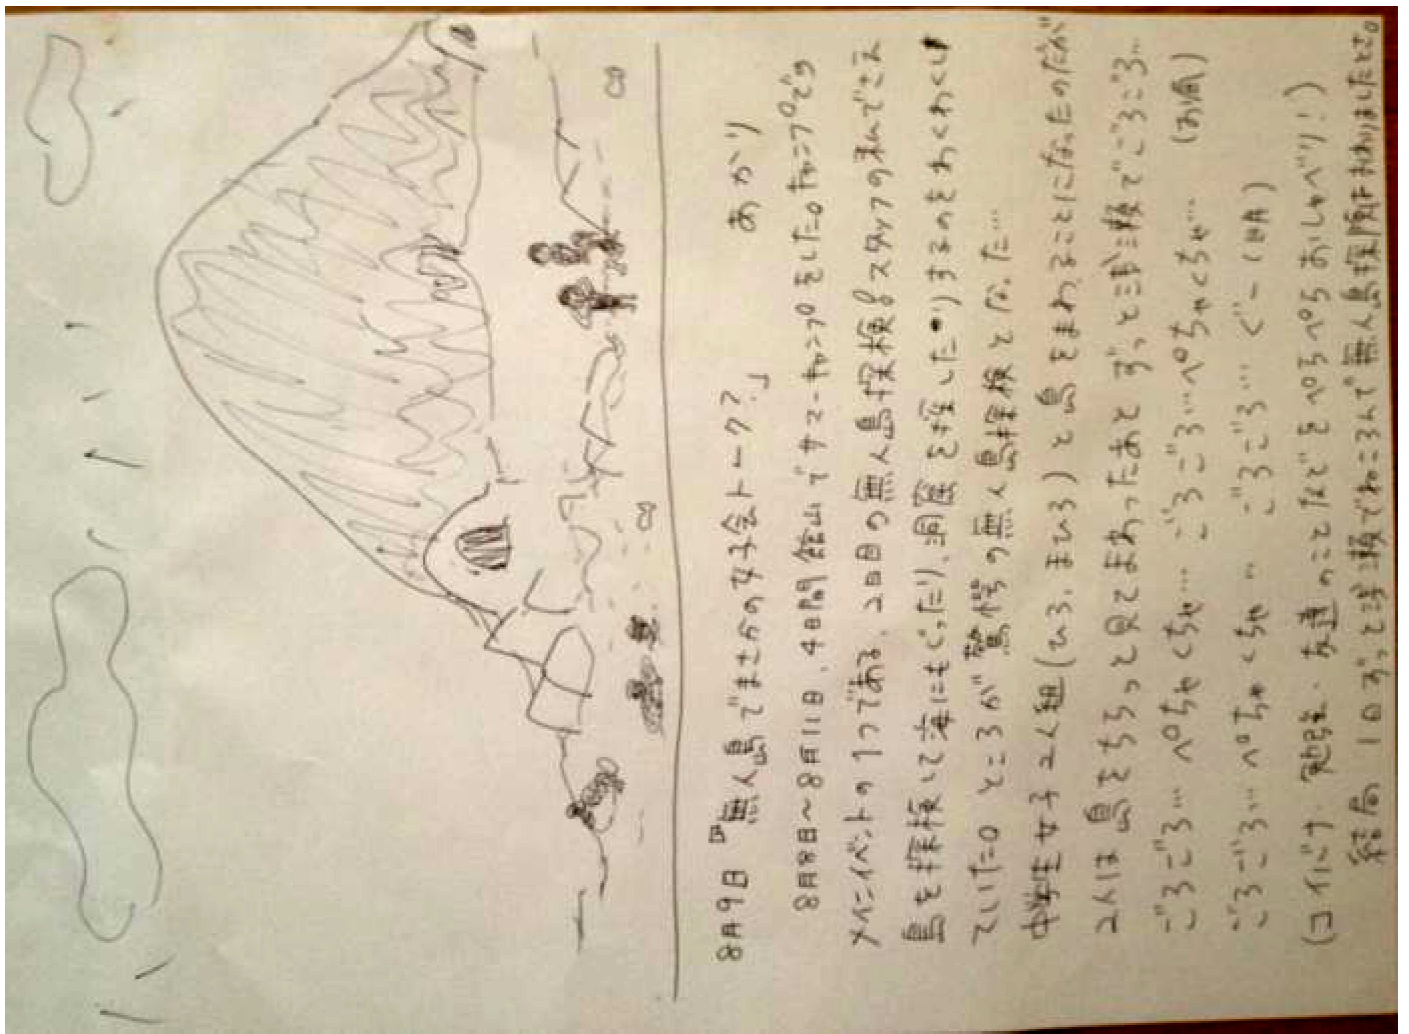 8月9日 『無人島でまさかの女子会トーク?』 あかり
8月8日〜8月11日、4日間館山でサマーキャンプをした。キャンプでの
メインイベントの1つである、2日目の無人島探検。スタッフの私でさえ
島を探検して海にもぐったり、洞窟を探したりするのをわくわくし
ていた。ところが驚愕の無人島探検となった…
中学生女子2人組(ひろ、まひろ)と島をまわることになったのだが
2人は島をちらっと見てまわったあと ずっとゴザの横でごろごろ…
ごろごろ… ぺちゃくちゃ… ごろごろ…ぺちゃくちゃ…
ごろごろ… ぺちゃくちゃ… ごろごろ… ぐー(
(コイバナ・勉強・友達のことなどをぺちぺちおしゃべり!)
結局 1日ずっと 横でねころんで無人島探険 おわりましたとさ。